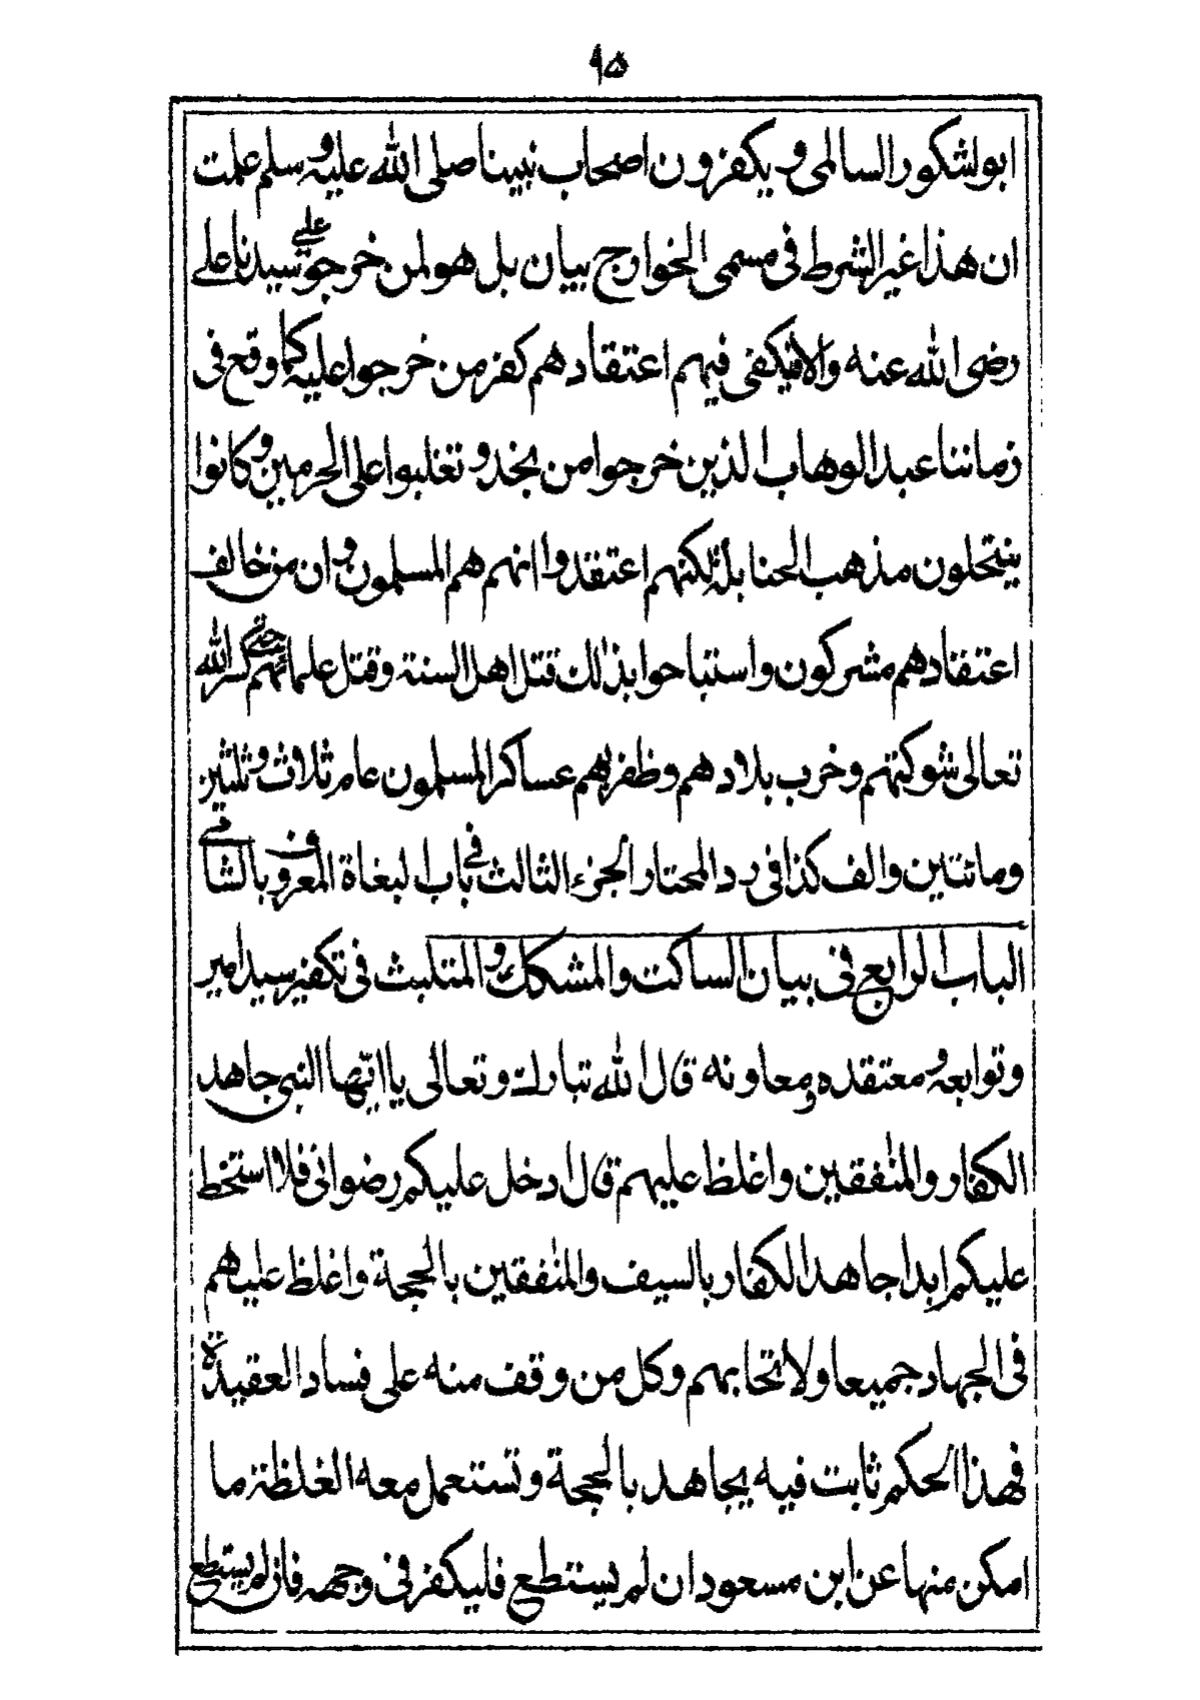 ٩۵
ابو لشكور السالمي و يكفرون اصحاب نبينا صلى الله عليه و سلم علمت
ان هذا غير الشرط في مسمى الخوارج بيان بل هو لمن خرجوا على سيدنا علي
رضى الله عنه والا فيكفي فيهم اعتقادهم كفر من خرجوا عليه كما وقع في
زماننا عبد الوهاب الذين خرجوا من نجد و تغلبوا على الحرمين و كانوا
ينتحلون مذهب الحنابلة لكنهم اعتقدوا انهم هم المسلمون و ان من خالف
اعتقادهم مشركون و استباحوا بذلك قتل اهل السنة و قتل علمائهم حتى كسر الله
تعالى شوكتهم و خرب بلادهم و ظفر بهم عساكر المسلمون عام ثلاث و ثلثين
و مائتين و الف كذا في رد المحتار الجزء الثالث في باب البغاة المعروف بالشافي
الباب الرابع في بيان الساكت و المشكك و المتلبث في تكفير سيد امير
و توابعه و معتقده و معاونه قال الله تبارك و تعالى يا ايّها النبي جاهد
الكفار و المنٰفقين و اغلظ عليهم قال ادخل عليكم رضواني فلا استخط
عليكم ابدا جاهد الكفار بالسيف و المنٰفقين بالحجة و اغلظ عليهم
في الجهاد جميعا و لا تحابهم و كل من وقف منه على فساد العقيدة
فهذا الحكم ثابت فيه يجاهد بالحجة و تستعمل معه الغلظة ما
امكن منها عن ابن مسعود ان لم يستطع فليكفر في وجهه فان لم يستطع